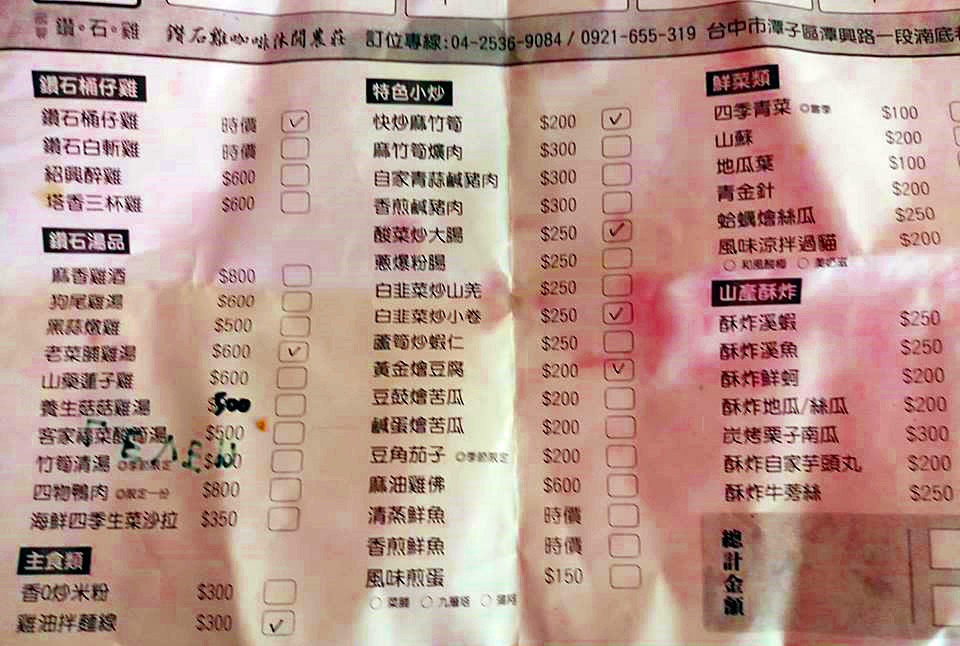 鑽。石。雞 鑽石雞咖啡休閒農莊 訂位專線:04-2536-9084 / 0921-655-319 台中市潭子區潭興路一段湳底巷
鑽石桶仔雞
鑽石桶仔雞 時價
鑽石白斬雞 時價
紹興醉雞 $600
塔香三杯雞 $600
鑽石湯品
麻香雞酒 $800
狗尾雞湯 $600
黑蒜燉雞 $500
老菜脯雞湯 $600
山藥蓮子雞 $600
養生菇菇雞湯 $500
客家福菜酸筍湯 $500
竹筍清湯 ◎季節限定
四物鴨肉 ◎限定一份 $800
海鮮四季生菜沙拉 $350
主食類
香Q炒米粉 $300
雞油拌麵線 $300
特色小炒
快炒麻竹筍 $200
麻竹筍爌肉 $300
自家青蒜鹹豬肉 $300
香煎鹹豬肉 $300
酸菜炒大腸 $250
蔥爆粉腸 $250
白韭菜炒山羌 $250
白韭菜炒小卷 $250
蘆筍炒蝦仁 $250
黃金燴豆腐 $200
豆鼓燴苦瓜 $200
鹹蛋燴苦瓜 $200
豆角茄子 ◎季節限定 $200
麻油雞佛 $600
清蒸鮮魚 時價
香煎鮮魚 時價
風味煎蛋 $150
○ 菜脯 ○ 九層塔 ○
鮮菜類
四季青菜 ◎當季 $100
山蘇 $200
地瓜葉 $100
青金針 $200
蛤蠣燴絲瓜 $250
風味涼拌過貓 $200
○ 和風酸梅 ○ 美奶滋
山產酥炸
酥炸溪蝦 $250
酥炸溪魚 $250
酥炸鮮蚵 $200
酥炸地瓜/絲瓜 $200
炭烤栗子南瓜 $300
酥炸自家芋頭丸 $200
酥炸牛蒡絲 $250
總計金額